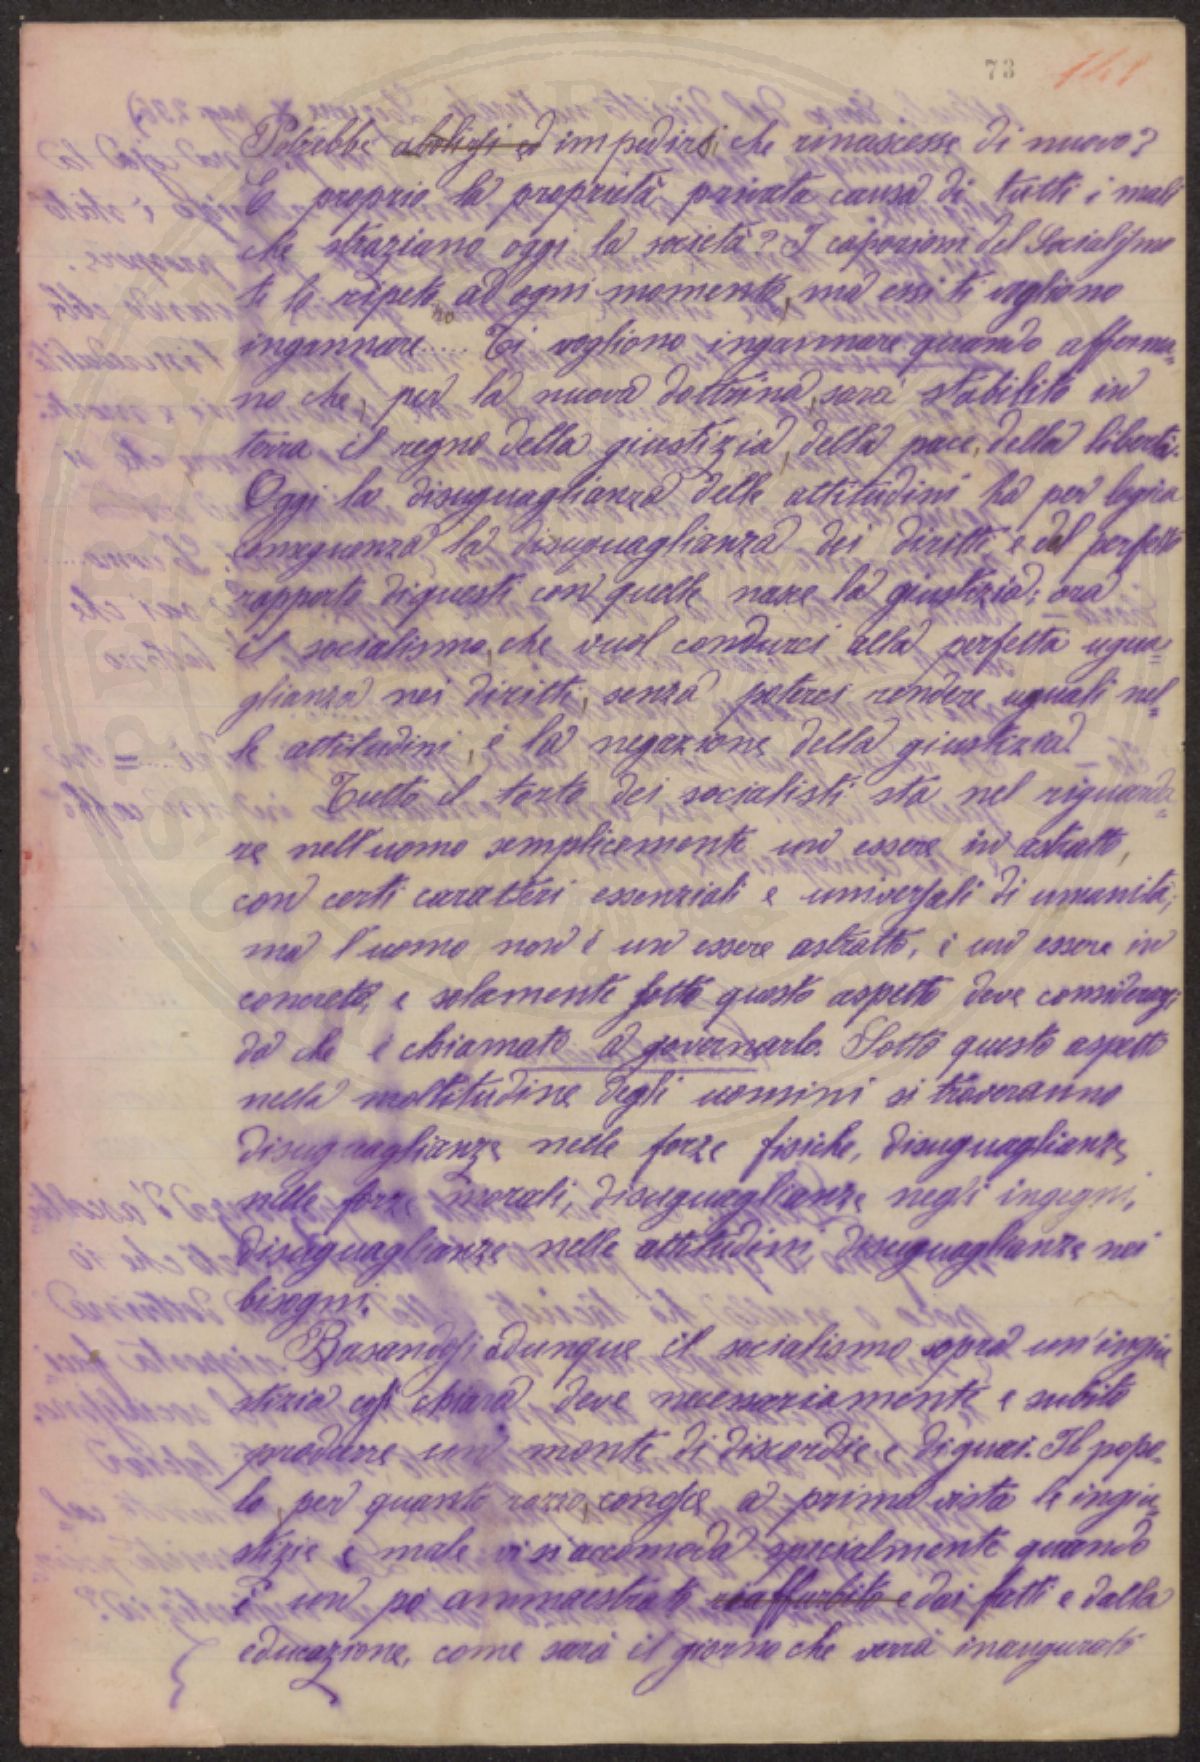 73 141
Potrebbe abolirsi ed impedirsi che rinascesse di nuovo?
È proprio la proprietà privata causa di tutti i mali
che straziano oggi la società? I caporioni del Socialismo
te lo ripetono ad ogni momento, ma essi ti vogliono
ingannare..... Ti vogliono ingannare quando afferma-
no che, per la nuova dottrina, sarà stabilito in
terra il regno della giustizia, della pace, della libertà.
Oggi la disuguaglianza delle attitudini ha per logica
conseguenza la disuguaglianza dei diritti e dal perfetto
rapporto di questi con quelle nasce la giustizia; ora
il socialismo, che vuol condurci alla perfetta ugua-
glianza nei diritti, senza poterci rendere uguali nel-
le attitudini, è la negazione della giustizia.
Tutto il torto dei socialisti sta nel riguarda-
re nell'uomo semplicemente un essere in astratto,
con certi caratteri essenziali e universali di umanità;
ma l'uomo non è un essere astratto, è un essere in
concreto, e solamente sotto questo aspetto deve considerarsi
da chi è chiamato a governarlo. Sotto questo aspetto
nella moltitudine degli uomini si troveranno
disuguaglianze nelle forze fisiche, disuguaglianze
nelle forze morali, disuguaglianze negli ingegni,
disuguaglianze nelle attitudini, disuguaglianze nei
bisogni.
Basandosi adunque il socialismo sopra un'ingiu
stizia così chiara deve necessariamente e subito
produrre un monte di discordie e di guai. Il popo-
lo, per quanto rozzo, conosce a prima vista le ingiu-
stizie e male vi si accomoda specialmente quando
è un po' ammaestrato e dai fatti e dalla
educazione, come sarà il giorno che verrà inaugurato